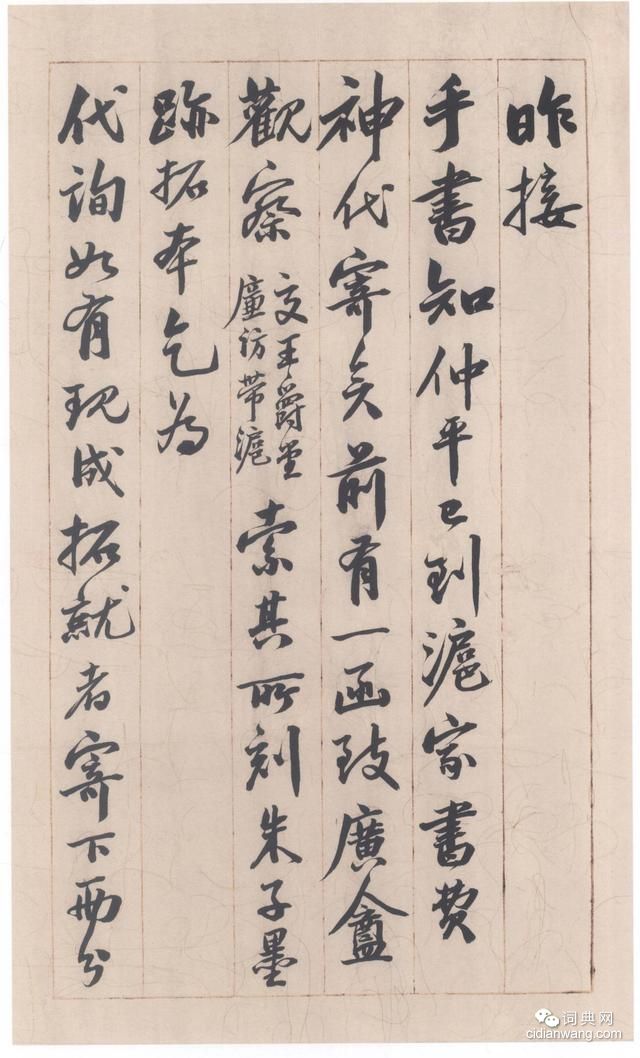 昨接
手書知仲平已到滬家書費
神代寄矣前有一函致廣盦
觀察
交王爵堂
廉訪带滬
索其所刻朱子墨
跡拓本乞為
代詢如有現成拓就者寄下兩分
词典网
cidianwang.com